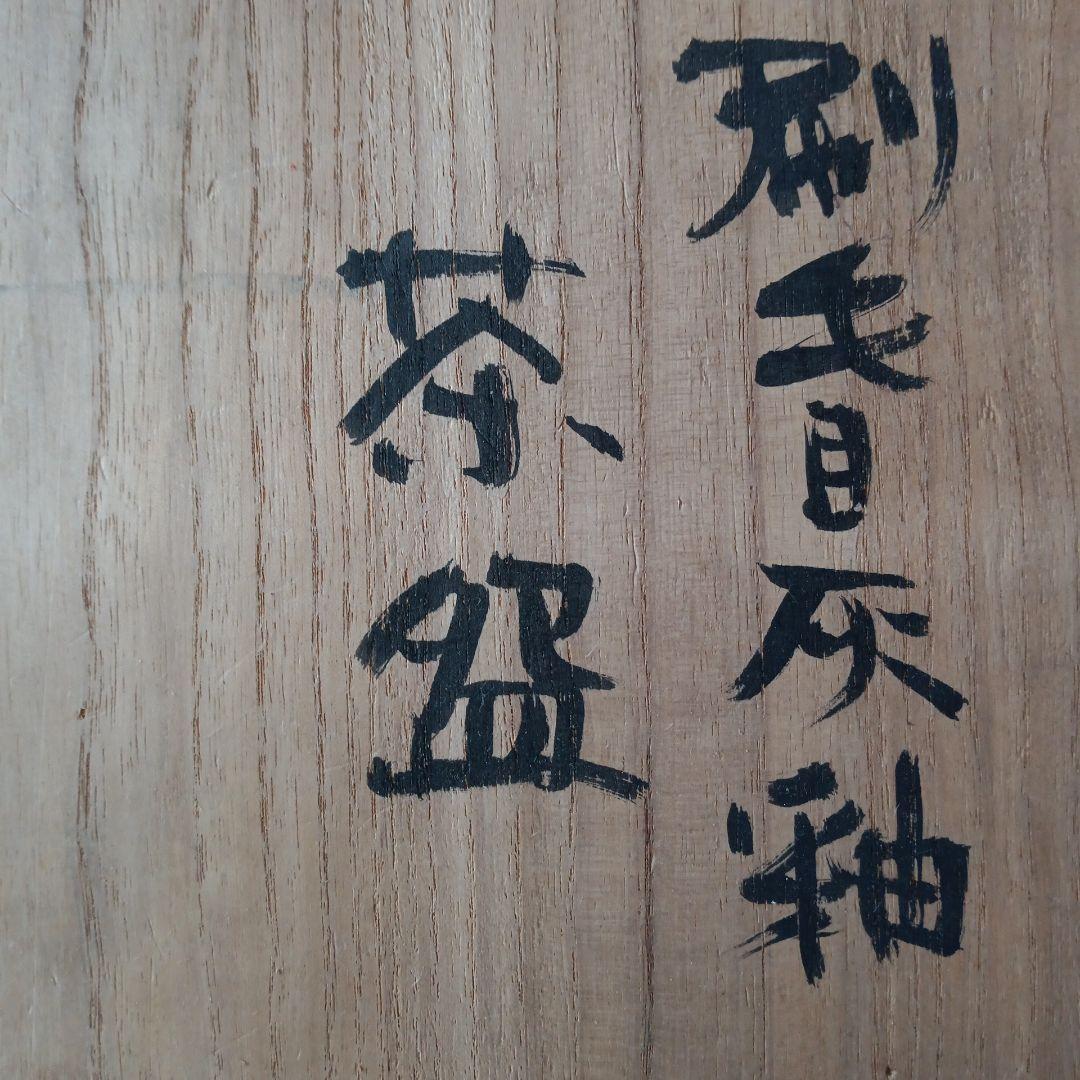 刷毛目灰釉
茶盌